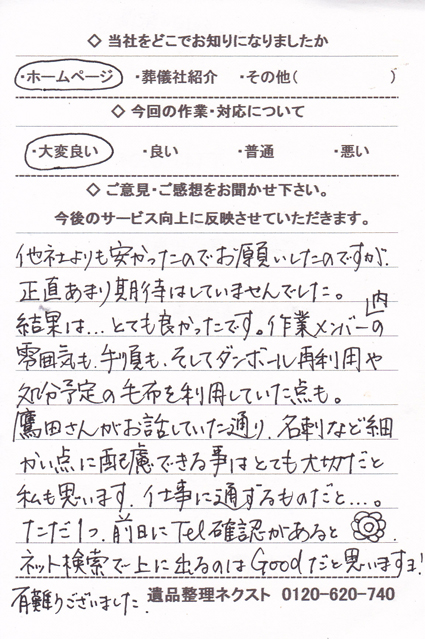 ◇ 当社をどこでお知りになりましたか
・ホームページ ・葬儀社紹介 ・その他( )
◇ 今回の作業・対応について
・大変良い ・良い ・普通 ・悪い
◇ ご意見・ご感想をお聞かせ下さい。
今後のサービス向上に反映させていただきます。
他社よりも安かったのでお願いしたのですが、
正直あまり期待はしていませんでした。
結果は…とても良かったです。作業メンバー内の
雰囲気も、手順も、そしてダンボール再利用や
処分予定の毛布を利用していた点も。
鷹田さんがお話していた通り、名刺など細
かい点に配慮できる事はとても大切だと
私も思います。仕事に通ずるものだと…。
ただ1つ、前日にTel確認があると
ネット検索で上に出るのはGoodだと思いますヨ!
有難うございました。
遺品整理ネクスト 0120-620-740